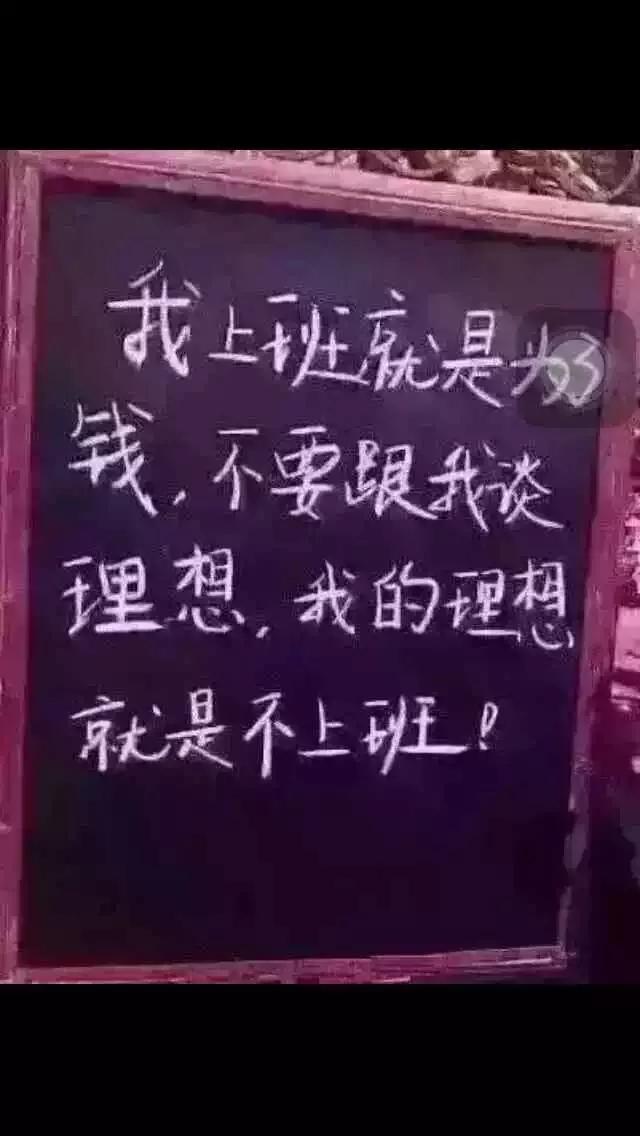 我上班就是为
钱，不要跟我谈
理想，我的理想
就是不上班！